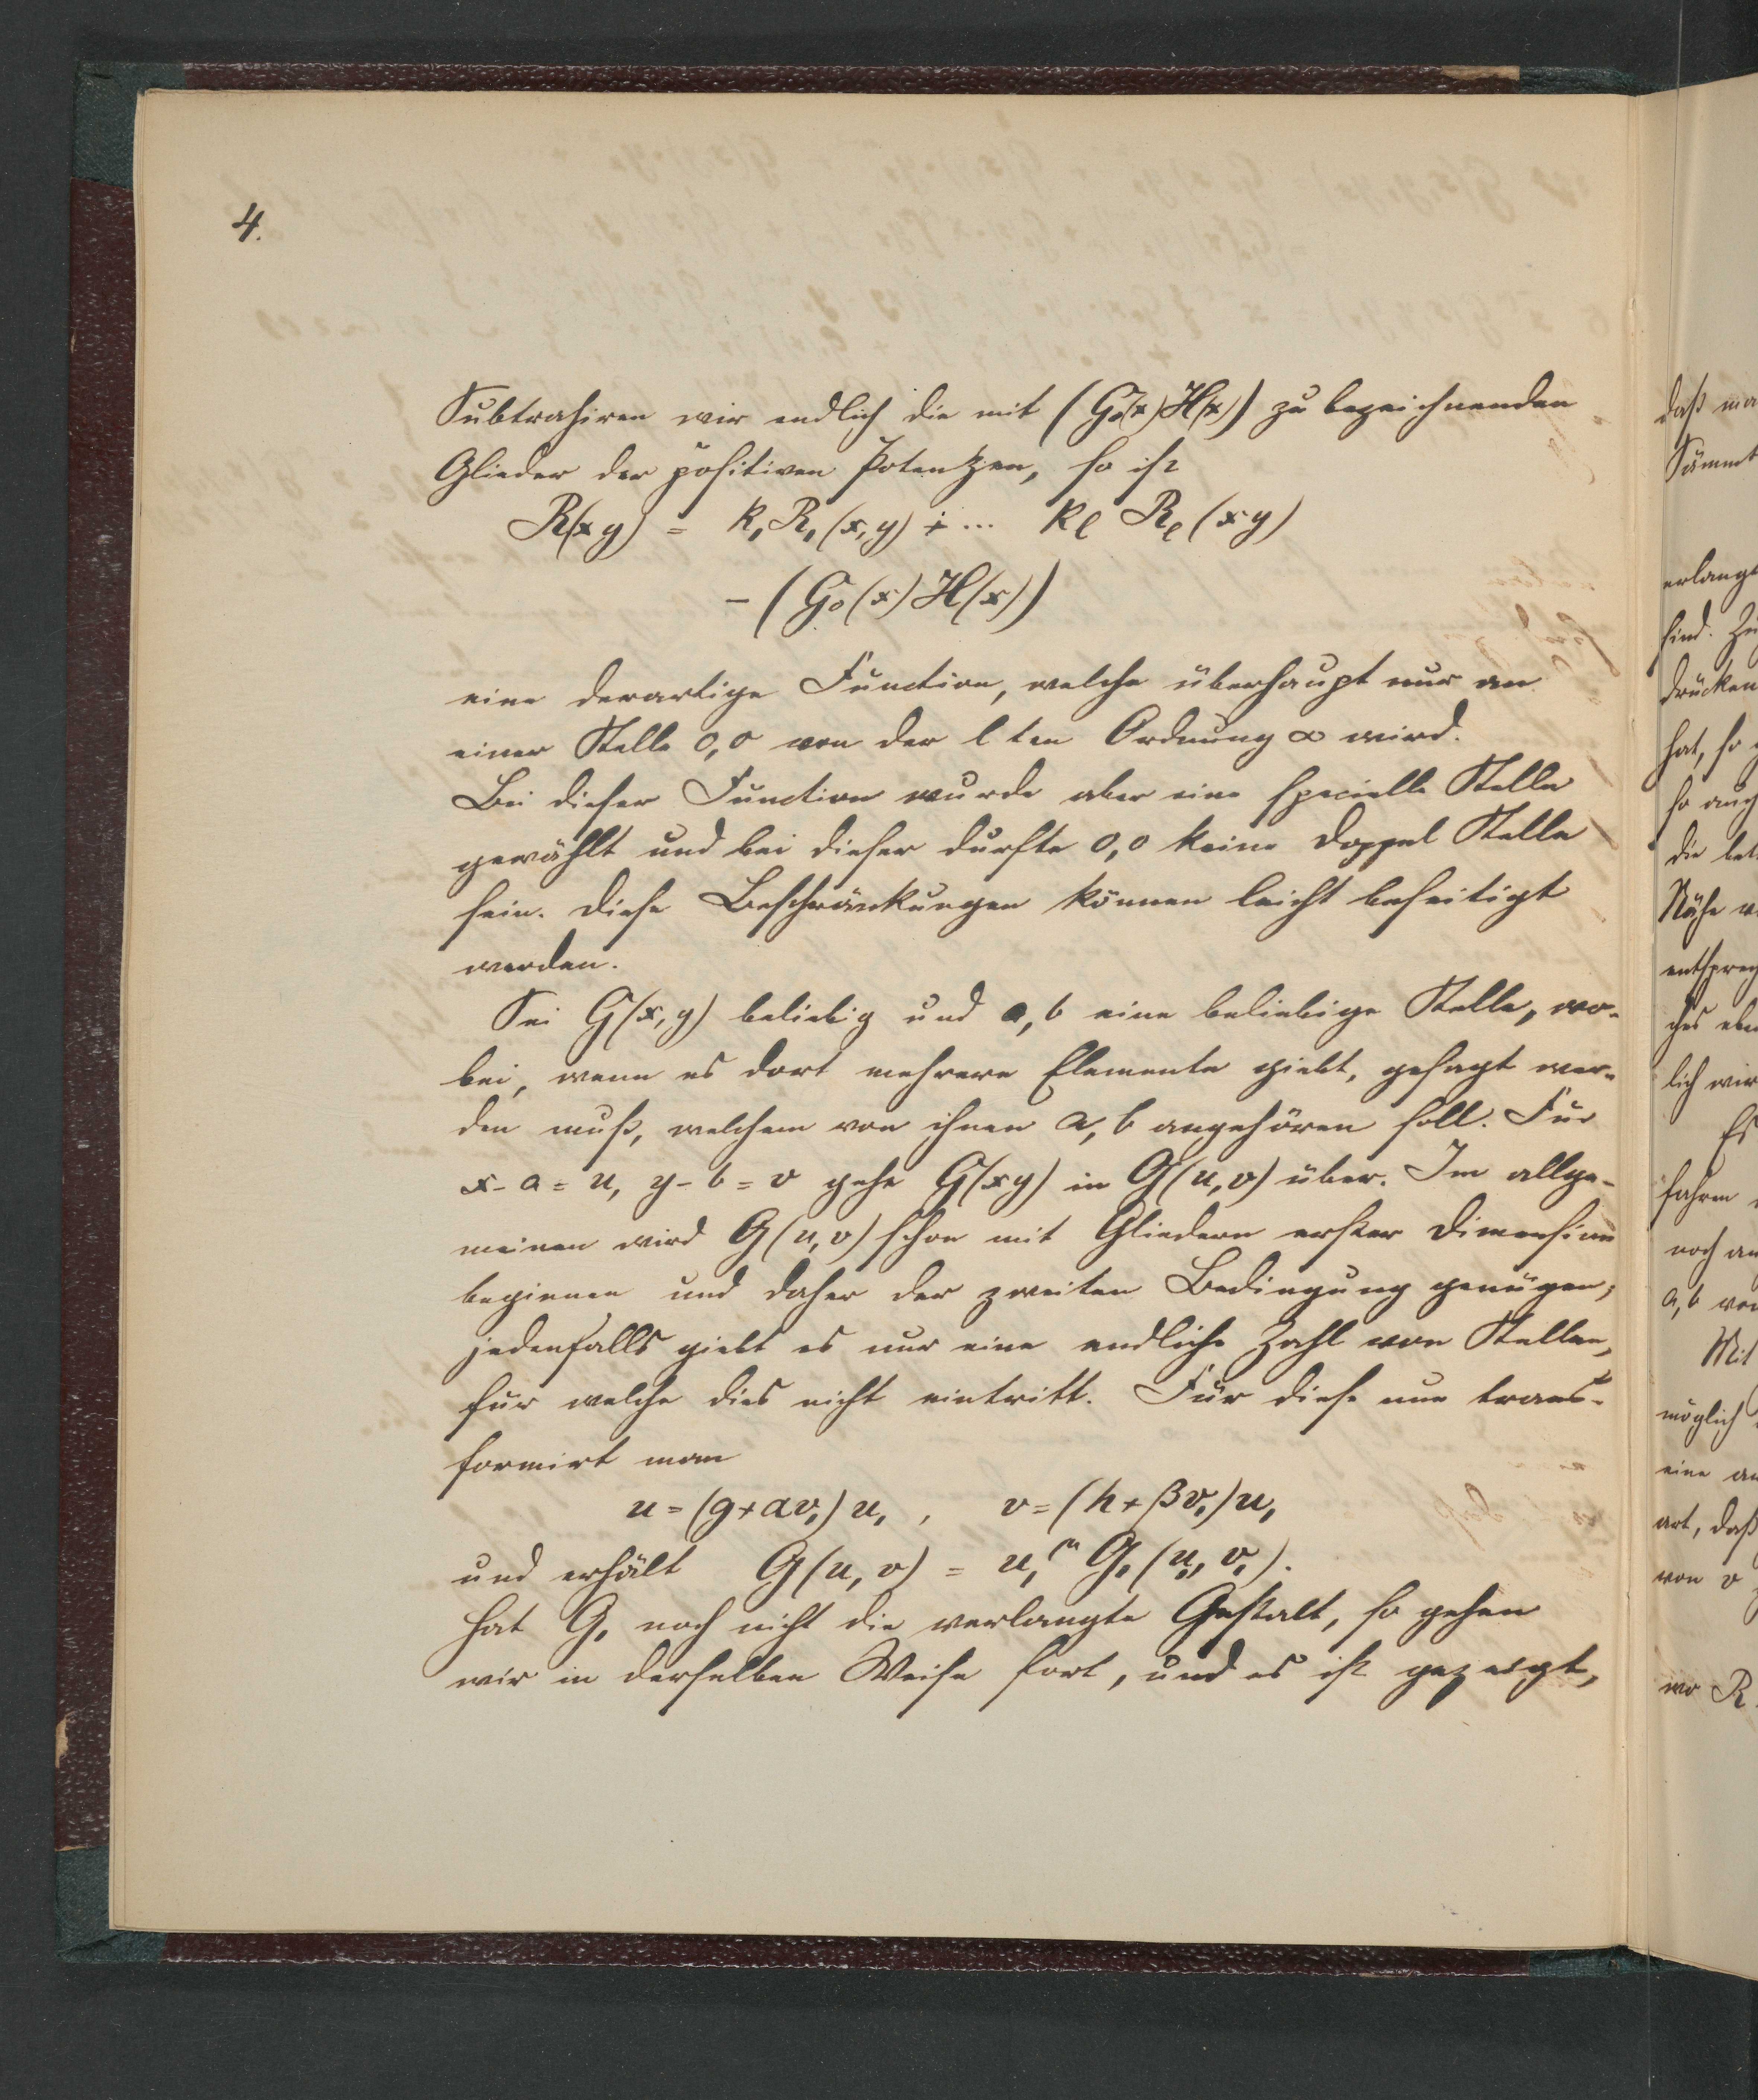 4.
Subtrahiren wir endlich die mit (G₀(x)H(x)) zu bezeichnenden
Glieder der positiven Potenzen, so ist
R(x y) = k₁R₁(x,y) + ... kₗ Rₗ(x y)
- (G₀(x)H(x))
eine derartige Function, welche überhaupt nur an
einer Stelle 0,0 von der l ten Ordnung ∞ wird.
Bei dieser Function wurde aber eine specielle Stelle
gewählt und bei dieser durfte 0,0 keine Doppel Stelle
sein. Diese Beschränkungen können leicht beseitigt
werden.
Sei G(x,y) beliebig und a,b eine beliebige Stelle, wo-
bei, wenn es dort mehrere Elemente giebt, gesagt wer-
den muß, welchem von ihnen a,b angehören soll. Für
x-a=u, y-b=v gehe G(xy) in G(u,v) über. Im allge-
meinen wird G(u,v) schon mit Gliedern erster Dimension
beginnen und daher der zweiten Bedingung genügen;
jedenfalls giebt es nur eine endliche Zahl von Stellen,
für welche dies nicht eintritt. Für diese nun trans-
formirt man
u=(g+αv₁)u₁, v=(h+βv₁)u₁
und erhält G(u,v) = u₁^m G₁(u₁,v₁).
Hat G₁ noch nicht die verlangte Gestalt, so gehen
wir in derselben Weise fort, und es ist gezeigt,
daß
erlangt
sind.
drücken
hat, so
so auch
die
Nähe
lich wir
Es
noch
a,b von
Mit
möglich
eine
art, daß
von v
wo R